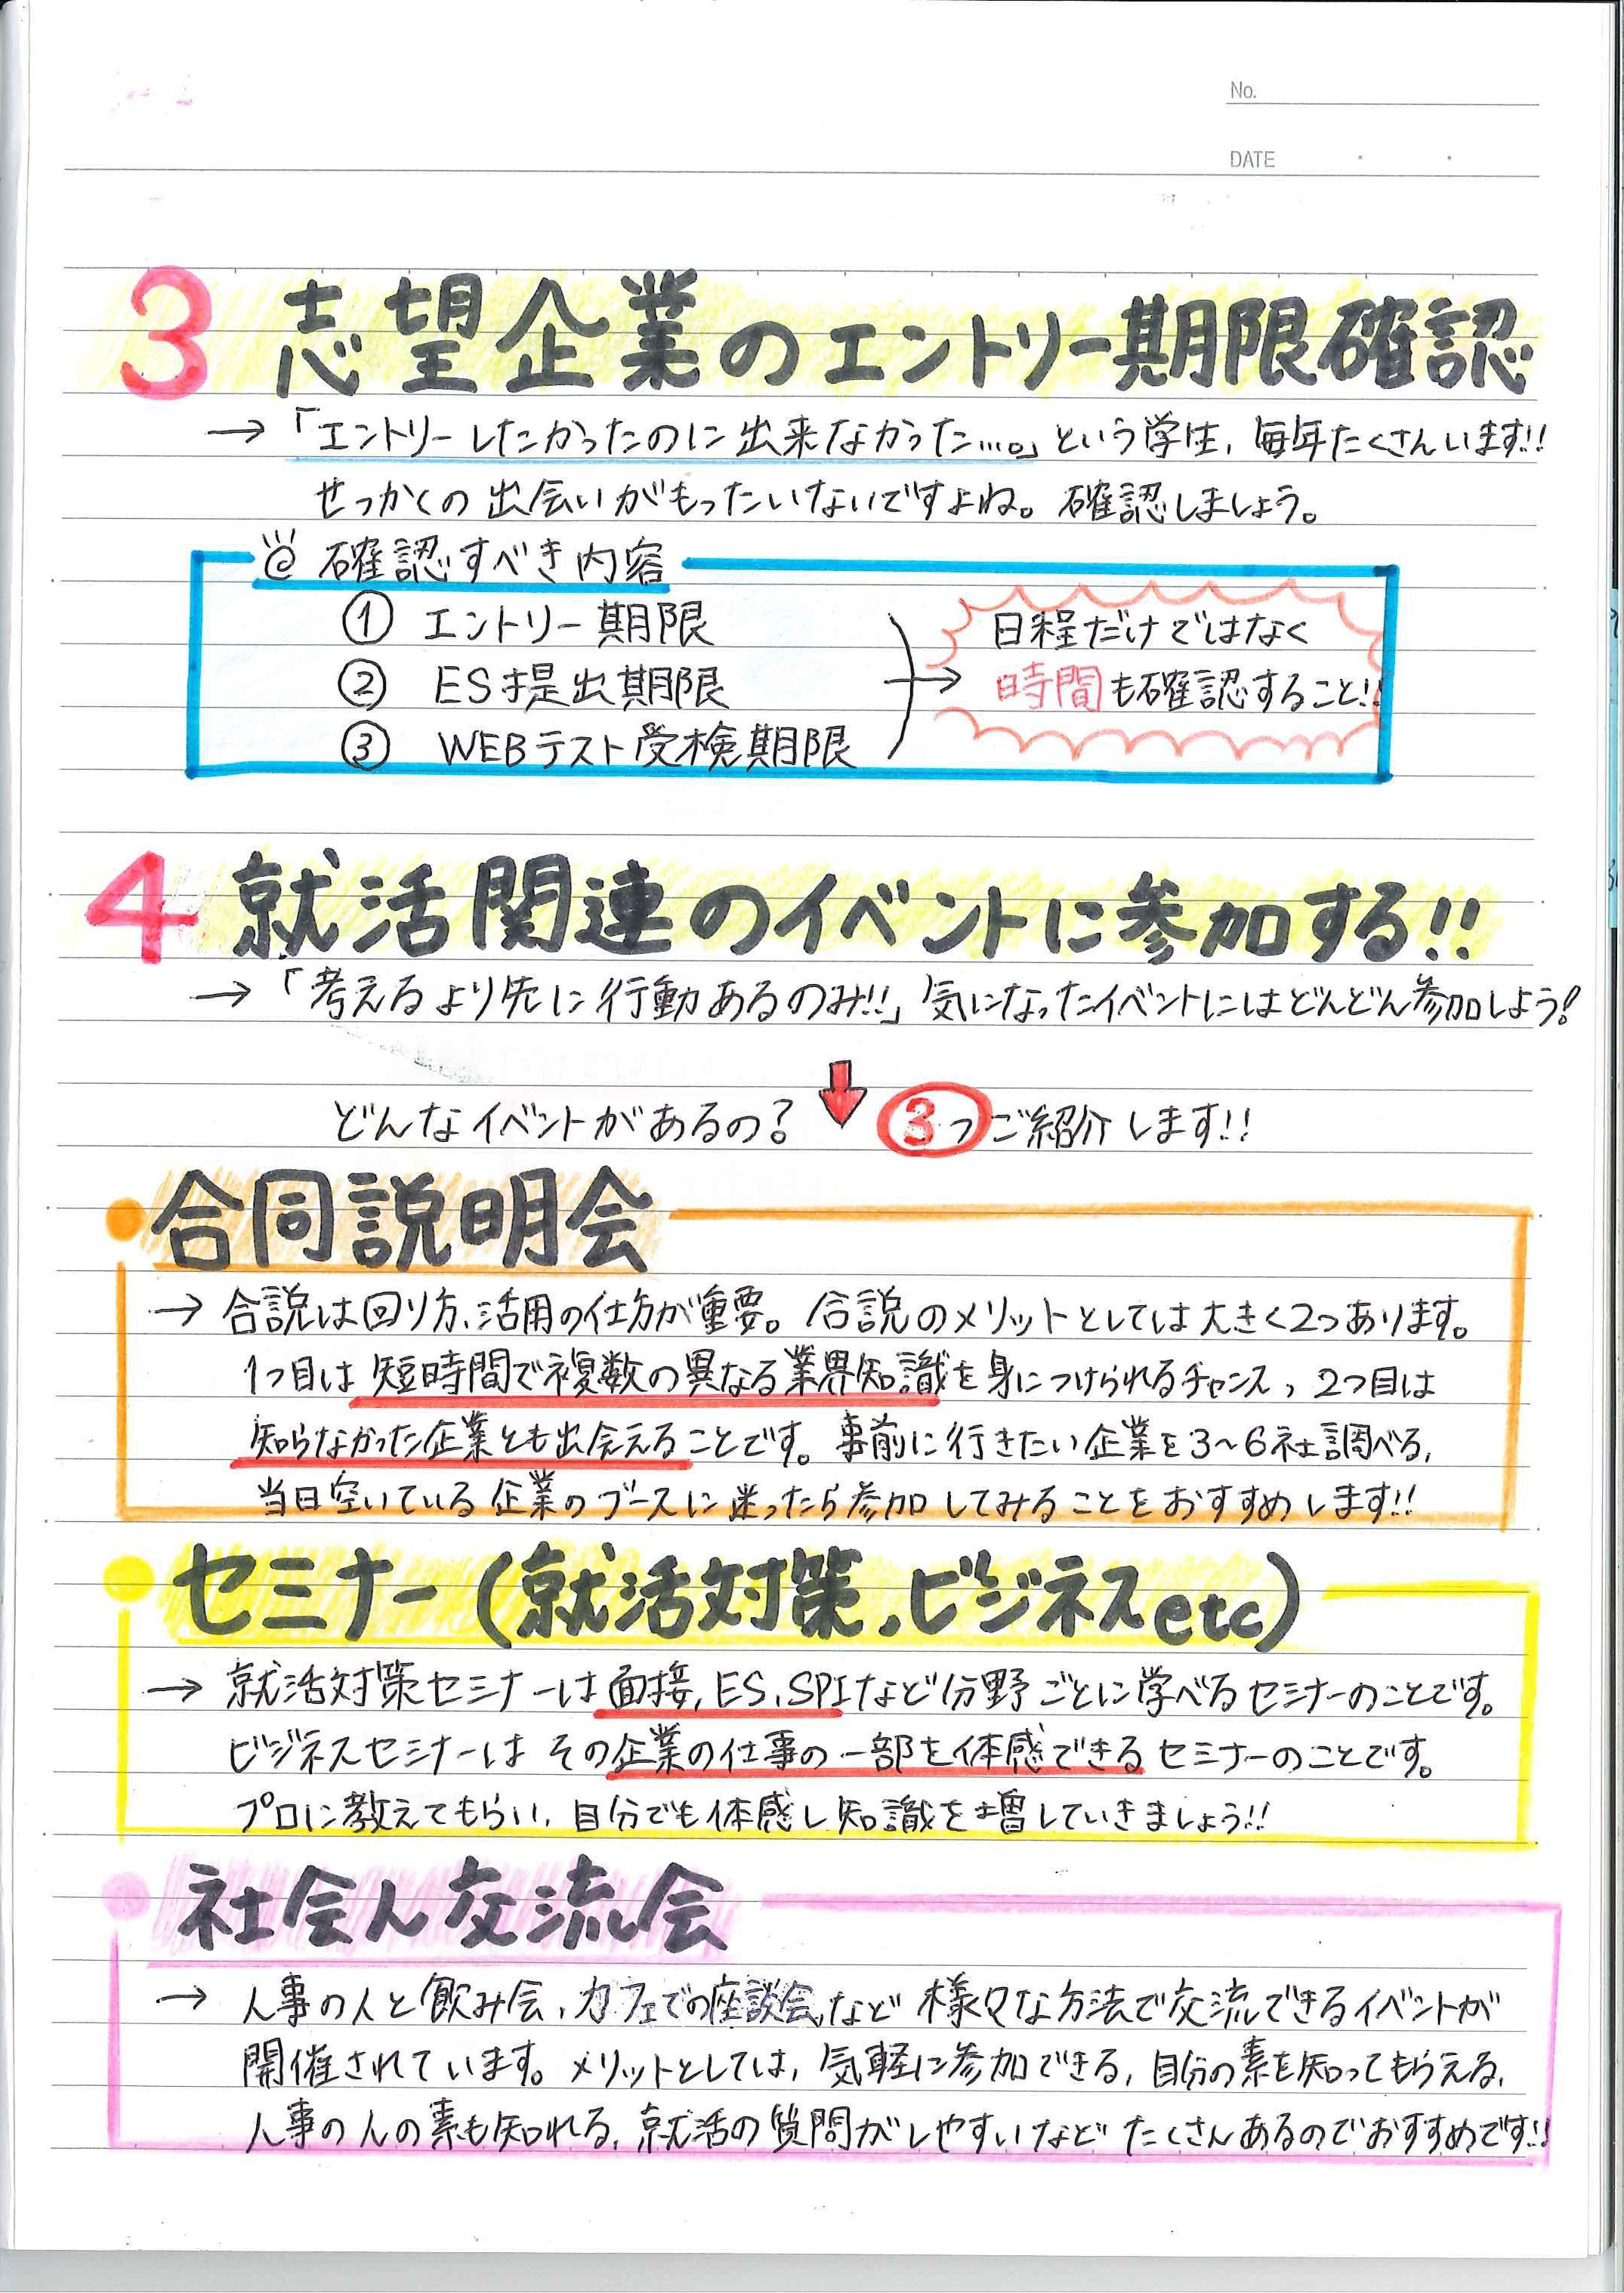 No.
DATE
3 志望企業のエントリー期限確認
→「エントリーしたかったのに出来なかった…。」という学生，毎年たくさんいます!!
せっかくの出会いがもったいないですよね。確認しましょう。
確認すべき内容
① エントリー期限
② ES提出期限
③ WEBテスト受検期限
→ 日程だけではなく
時間も確認すること!!
4 就活関連のイベントに参加する!!
→「考えるより先に行動あるのみ!!」気になったイベントにはどんどん参加しよう!
どんなイベントがあるの? ③つご紹介します!!
合同説明会
→ 合説は回り方、活用の仕方が重要。合説のメリットとしては大きく2つあります。
1つ目は短時間で複数の異なる業界知識を身につけられるチャンス，2つ目は
知らなかった企業とも出会えることです。事前に行きたい企業を3～6社調べる，
当日空いている企業のブースに迷ったら参加してみることをおすすめします!!
セミナー(就活対策、ビジネスetc)
→ 就活対策セミナーは面接，ES、SPIなど分野ごとに学べるセミナーのことです。
ビジネスセミナーはその企業の仕事の一部を体感できるセミナーのことです。
プロに教えてもらい，自分でも体感し知識を増していきましょう!!
社会人交流会
→ 人事の人と飲み会、カフェでの座談会，など様々な方法で交流できるイベントが
開催されています。メリットとしては，気軽に参加できる，自分の素を知ってもらえる，
人事の人の素も知れる，就活の質問がしやすいなどたくさんあるのでおすすめです!!